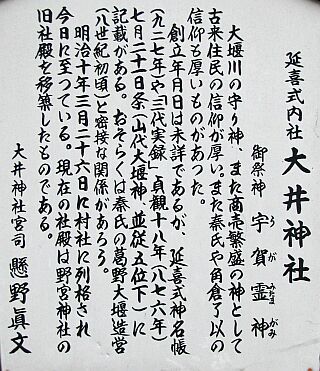 延喜式内社 大井神社
御祭神 宇賀霊神
うが みたま がみ
大堰川の守り神、また商売繁盛の神として
古来住民の信仰が厚い。また秦氏や角倉了以の
信仰も厚いものがあった。
創立年月日は未詳であるが、延喜式神名帳
(九二七年)や「三代実録」貞観十八年(八七六年)
七月二十一日条(山代大堰神、並従五位下)に
記載がある。おそらくは秦氏の葛野大堰造営
(八世紀初頃)と密接な関係があろう。
明治十年三月二十六日に村社に列格され
今日に至っている。現在の社殿は野宮神社の
旧社殿を移築したものである。
大井神社宮司 懸野眞文